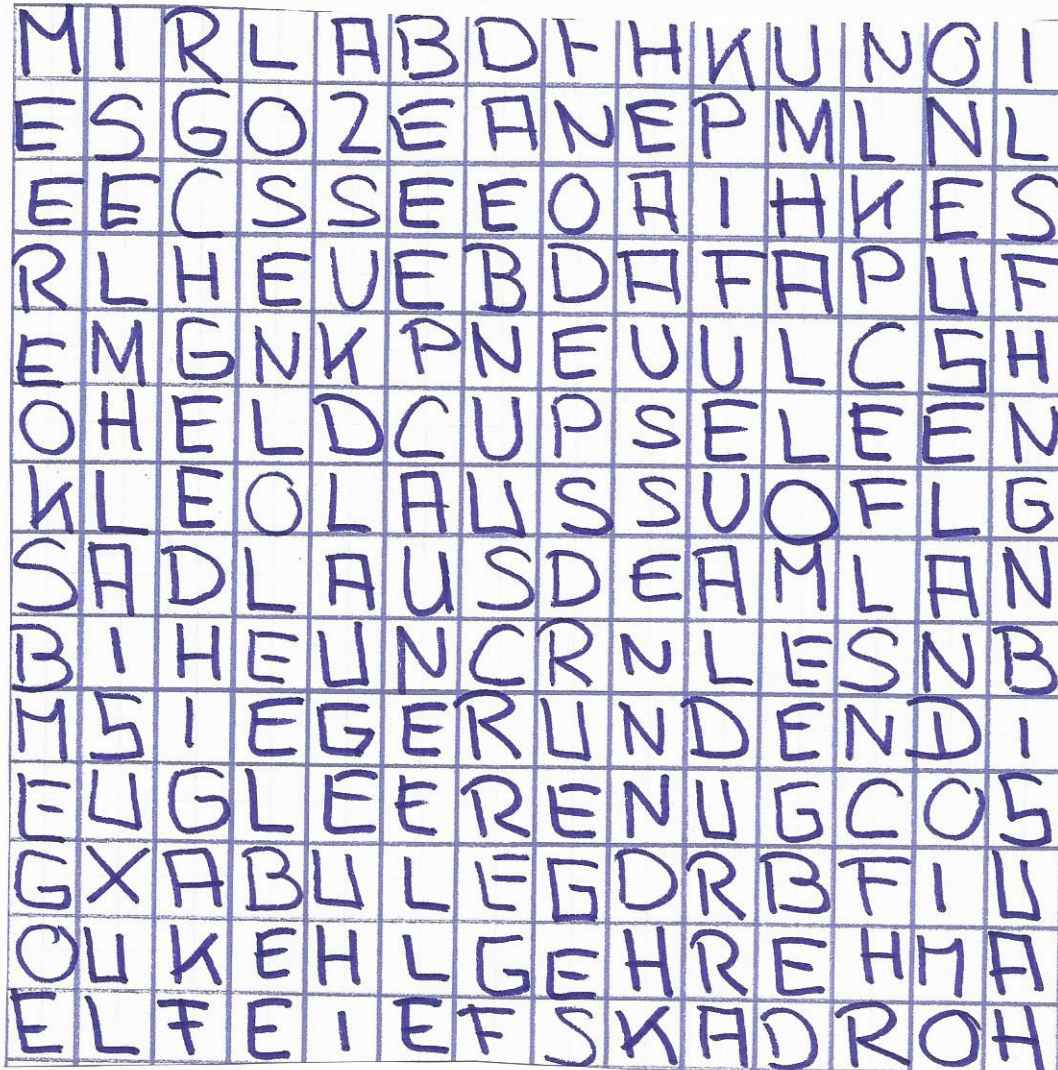 M I R L A B D F H K U N O I
E S G O Z E A N E P M L N L
E E C S S E E O A I H K E S
R L H E U E B D A F A P U F
E M G N K P N E U U L C S H
O H E L D C U P S E L E E N
K L E O L A U S S U O F L G
S A D L A U S D E A M L A N
B I H E U N C R N L E S N B
M S I E G E R U N D E N D I
E U G L E E R E N U G C O S
G X A B U L E G D R B F I U
O U K E H L G E H R E H M A
E L F E I E F S K A D R O H